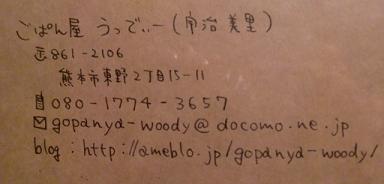 ごぱん屋 うっでぃー(宇治 美里)
〒861-2106
熊本市東野2丁目15-11
080-1774-3657
gopanya-woody@docomo.ne.jp
blog:http://ameblo.jp/gopanya-woody/